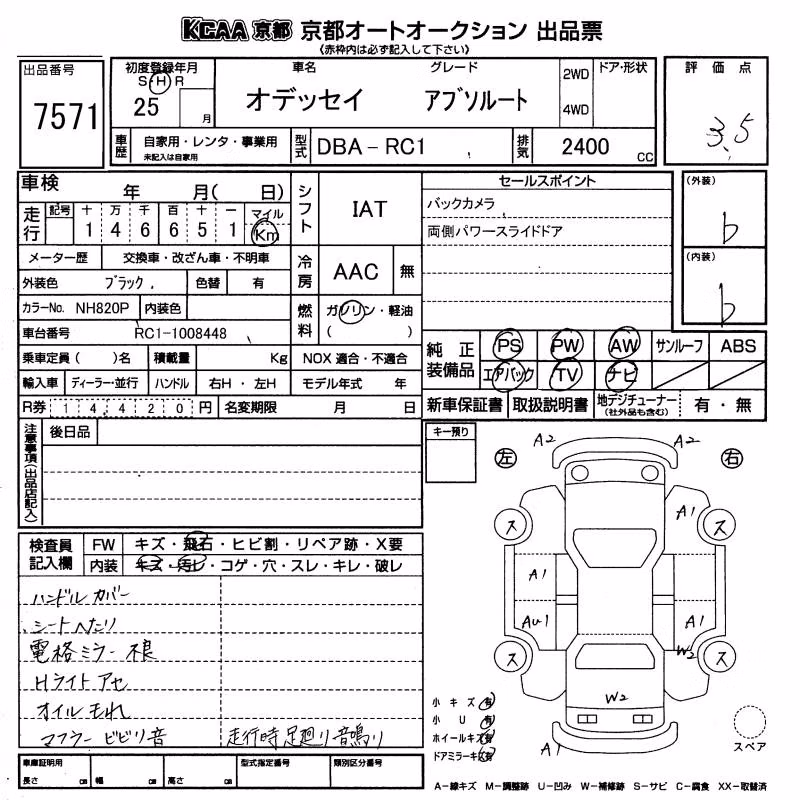 KCAA 京都 京都オートオークション 出品票
(赤枠内は必ず記入して下さい)
出品番号
7571
初度登録年月
S・H・R
25 月
車名
オデッセイ
グレード
アブソルート
2WD
4WD
ドア・形状
評価点
3.5
車歴
自家用・レンタ・事業用
未記入は自家用
型式
DBA－RC1
排気
2400 CC
車検 年 月( 日)
走行
記号 十 万 千 百 十 一 マイル
1 4 6 6 5 1 Km
シフト
IAT
メーター歴 交換車・改ざん車・不明車
外装色 ブラック 色替 有
冷房
AAC 無
カラーNo. NH820P 内装色
燃料
ガソリン・軽油
( )
車台番号 RC1-1008448
乗車定員( )名 積載量 Kg NOX 適合・不適合
輸入車 ディーラー・並行 ハンドル 右H・左H モデル年式 年
R券 14,420 円 名変期限 月 日
セールスポイント
バックカメラ
両側パワースライドドア
(外装)
b
(内装)
b
純正装備品
PS PW AW サンルーフ ABS
エアバック TV ナビ
新車保証書 取扱説明書 地デジチューナー (社外品も含む) 有・無
注意事項(出品店記入)
後日品
キー預り
検査員記入欄
FW キズ・飛石・ヒビ割・リペア跡・X要
内装 キズ・汚レ・コゲ・穴・スレ・キレ・破レ
ハンドル カバー
シートへたり
電格ミラー 不良
Hライト アセ
オイル もれ
マフラー ビビリ音
走行時 足廻り 音鳴り
左 右
A2 A2
ス A1 ス
A1
AU1 A1
ス W2 ス
W2
A1
小キズ 有
小U 有
ホイールキズ 有
ドアミラーキズ 有
スペア
車庫証明用
長さ cm 幅 cm 高さ cm
型式指定番号
類別区分番号
A－線キズ M－調整跡 U－凹み W－補修跡 S－サビ C－腐食 XX－取替済